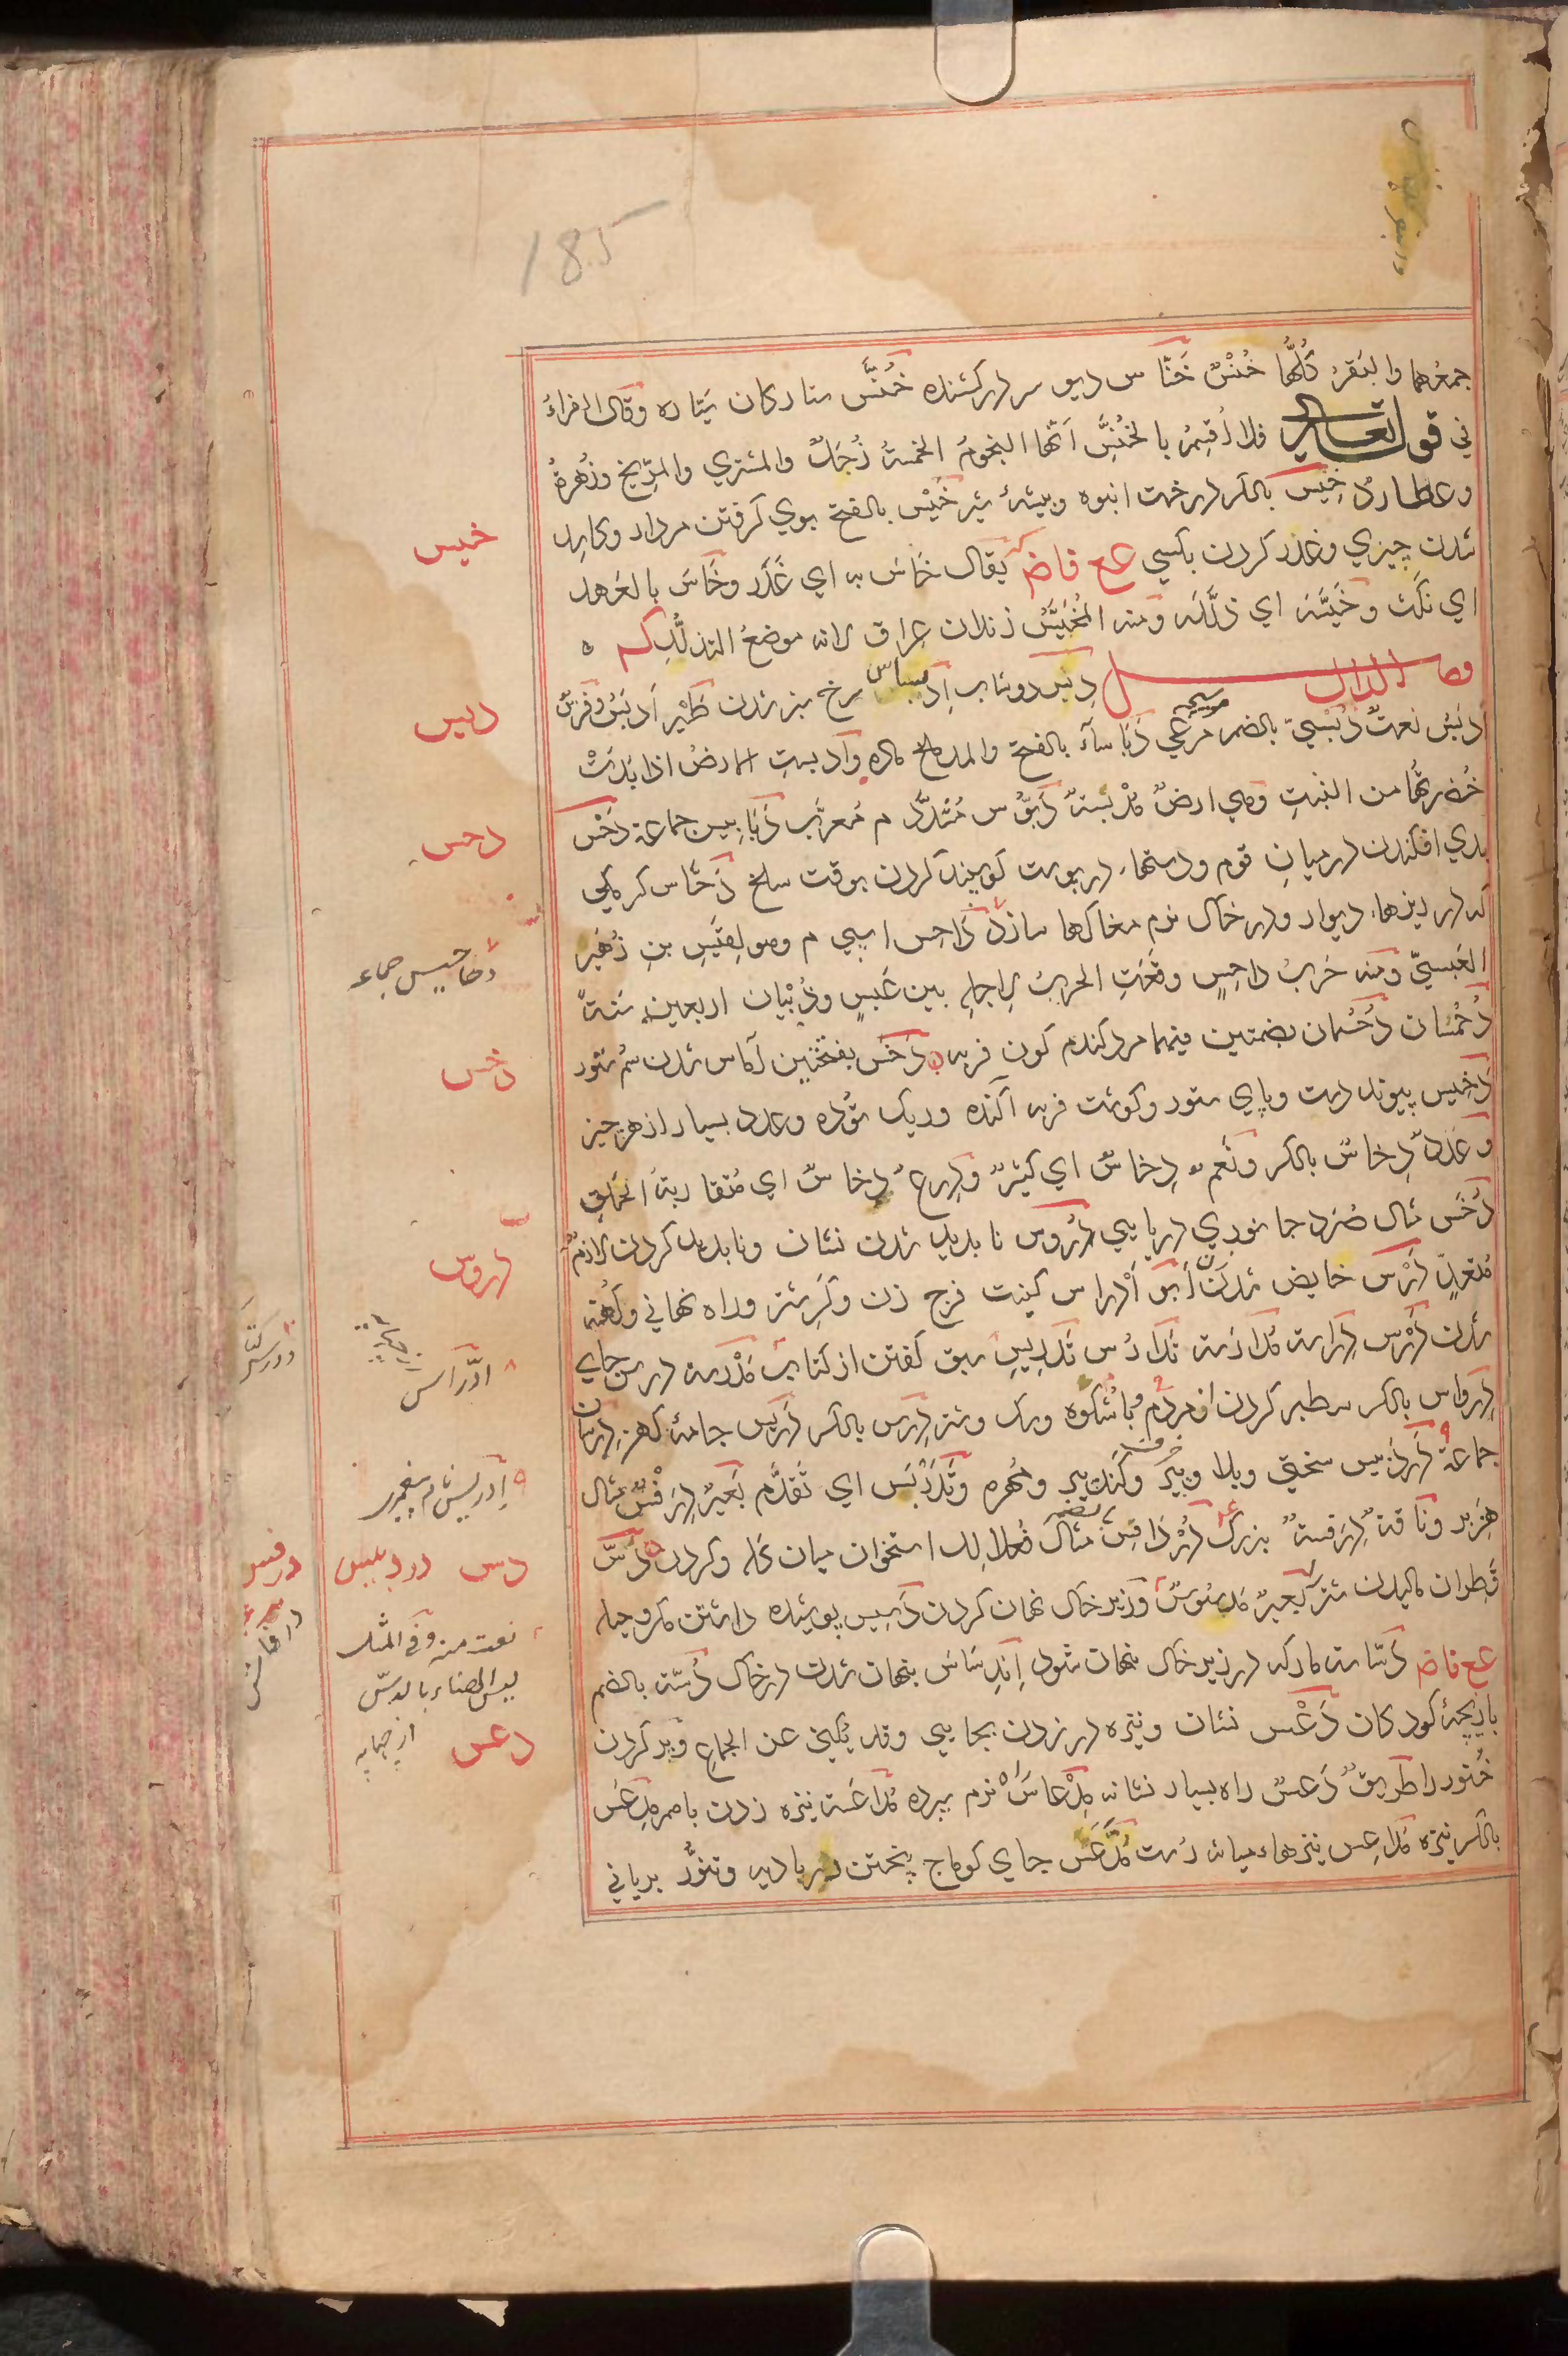 185
جمعُهما والبَقَرُ كُلُّهَا خُنْسٌ خَنّاس ديو سر دركشنده خُنَّس ستاركان سَيّاره وقال الفراءُ
في قوله تعالى فلا اُقسِمُ بالخُنَّسِ انّها النجومُ الخمسةُ زُحَلُ والمشتري والمِرّيخ وزُهرةُ
وعطاردُ خِيس بالكسر درخت انبوه وبيشۀ شير خَيْس بالفتح بوي كرفتن مردار وكاسد
شدن چيزي وغدر كردن بكسي ع ع ف ا ض يُقال خاسَ به اي غَدَر وخَاسَ بالعَهد
اي نَكَثَ وخَيَّسَه اي ذلَّلَه ومنه المُخَيَّسُ زندان عراق لانه موضعُ التذلُّل
فصل الدال دِبس دوشاب اِدبساس سرخ سبز شدن طَيْر اَدبَسُ وفَرسٌ
اَدبَسُ نعتٌ دُبْسِيّ بالضم مرغي موسيچه دَبَاساَء بالفتح والمد ملخ ماده وادبستِ الارضُ اذا بَدَتْ
خُضرتُها من النبتِ وهي ارضٌ مُدْبسةٌ دَبُّوس مُشدَّد م مُعرَّب دَبَابيس جماعة دَحْس
بدي افكندن درميانِ قوم ودستها در پوست كوسپند كردن بوقت سلخ دَحّاس كرمكي
كه در ريزهاء ديوار ودر خاك نرم مغاكها سازد دَاحِس اسپي م وهو لِقَيسِ بنِ زُهَير
العَبسيّ ومنه حَربُ داحِسٍ وقَعَتِ الحربُ لِاجلِه بين عَبسٍ وذُبْيان اربعين سَنةً
دُحْمُسان دُحْسُمان بضمتين فيهما مرد كندم كون فربه دَخَس بفتحتين آماس شدن سُم ستور
دَخِيس پيوند دست وپاي ستور وكوشت فربه آكنده وريك توده وعدد بسيار از هر چيز
وعَدَدٌ دِخاسٌ بالكسر ونَعَمٌ دِخاسٌ اي كثيرٌ ودِرعٌ دِخاسٌ اي مُتقاربةُ الحَلَقِ
دُخَس مثال صُرَد جانوري دريايي دُرُوس ناپديد شدن نشان وناپديد كردن لازمٌ
متعدٍ دَرْس حايض شدن اَبو اَدْراس كنيت فرج زن وكرِ شتر وراه نهاني وكهنه
شدن دَرْس دِراسة مُدارَسة تَدارُس تَدرِيس سبق كفتن از كتاب مَدْرَسة درس جاي
دِرواس بالكسر سطبر كردن از مردم وباشكوه وسك وشتر دِرس بالكسر دَرِيس جامۀ كهنه دِرسان
جماعة دَردَبِيس سختي وبلا وپير وكنده پير ومُهره وتَدَرْبَس اي تَقدَّم بَعيرٌ دِرَفْسٌ مثال
هِزَبر وناقةٌ دِرَفسةٌ بزرك دُرْدَاقِسٌ استخوان ميان كله وكردن دَسّ
قَطِران ماليدن شتر بَعيرٌ مَدسُوسٌ ودر زير خاك نهان كردن دَسِيس پوشيده داشتن مكر وحيله
ع ع ف ا ض دَسّاسة مار كه در زير خاك پنهان شود اِندِساس پنهان شدن در خاك دُسّة بالضم
بازيچۀ كودكان دَعْس نشان ونيزه در زدن بجايي وقد يُكنى عن الجماع وپر كردن
خُنور را طريقٌ دَعسٌ راه بسيار نشانه مِدْعاسٌ نرم سپرده مُداعَسة نيزه زدن باهم مِدعَس
بالكسر نيزه مَداعِس نيزهاء ميانه رُست مُدَّعَس جاي كوماج پختن در باديه وتنور برياني
خيس
دبس
دحس
دحاحيس جماعه
دخس
دروس
ادّراس
اِدريس م پيغمبري
دس
دردبيس
درفس
نعت منه وفي المثل
ليس الهناء بالدسّ
دعس